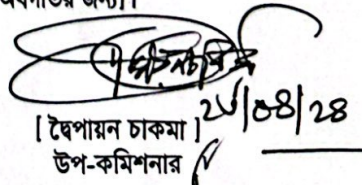 অবগতির জন্য।
[ দ্বৈপায়ন চাকমা ] ২৮/০৪/২৪
উপ-কমিশনার